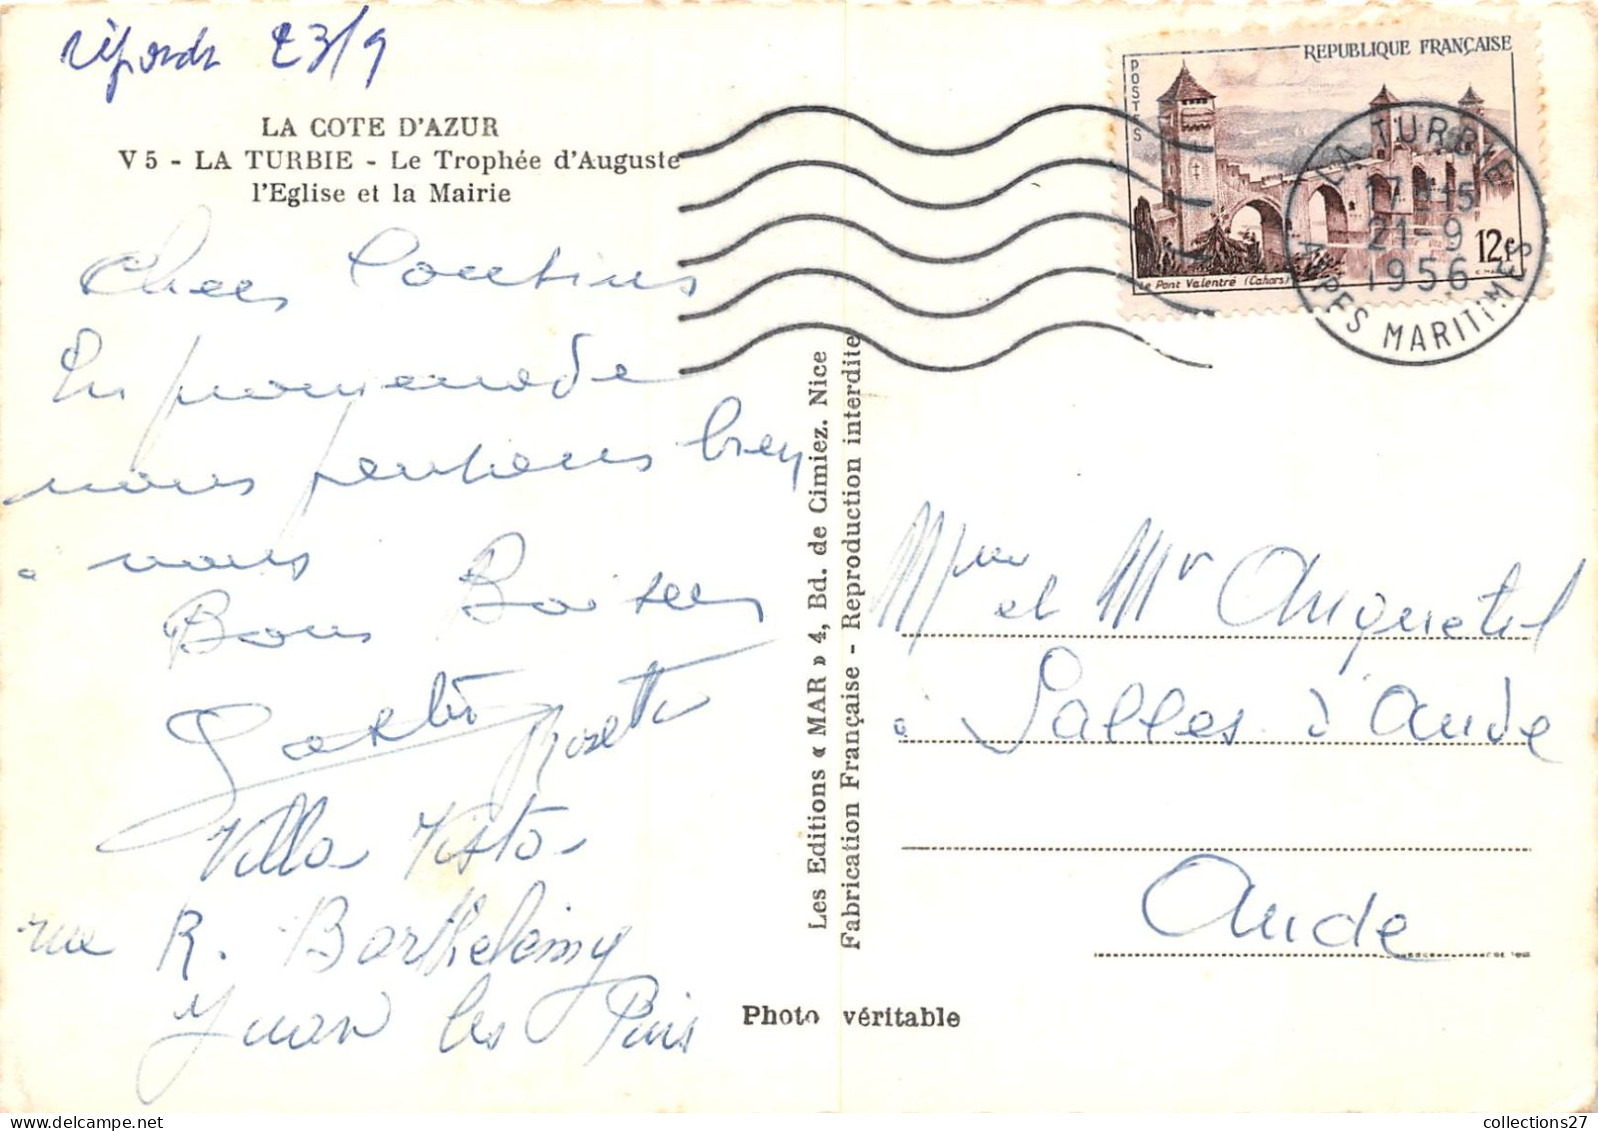 répondu 23/9
LA COTE D'AZUR
V 5 - LA TURBIE - Le Trophée d'Auguste
l'Eglise et la Mairie
Chers Cousins
En promenade
nous pensons bien
à vous
Bons Baisers
Villa Vista
rue R. Barthelemy
Juan les Pins
Les Editions « MAR » 4, Bd. de Cimiez. Nice
Fabrication Française - Reproduction interdite
Photo véritable
REPUBLIQUE FRANÇAISE
POSTES
12f
Le Pont Valentré (Cahors)
LA TURBIE
17H15
21-9
1956
ALPES MARITIMES
Mme et Mr Anquetil
à Salles d'Aude
Aude
collections27